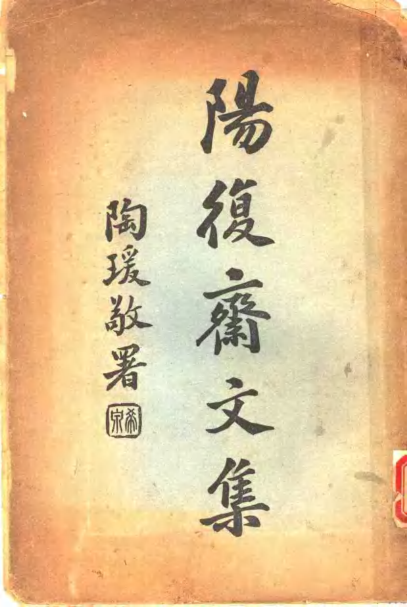 陽復齋文集
陶瑗敬署
希泉